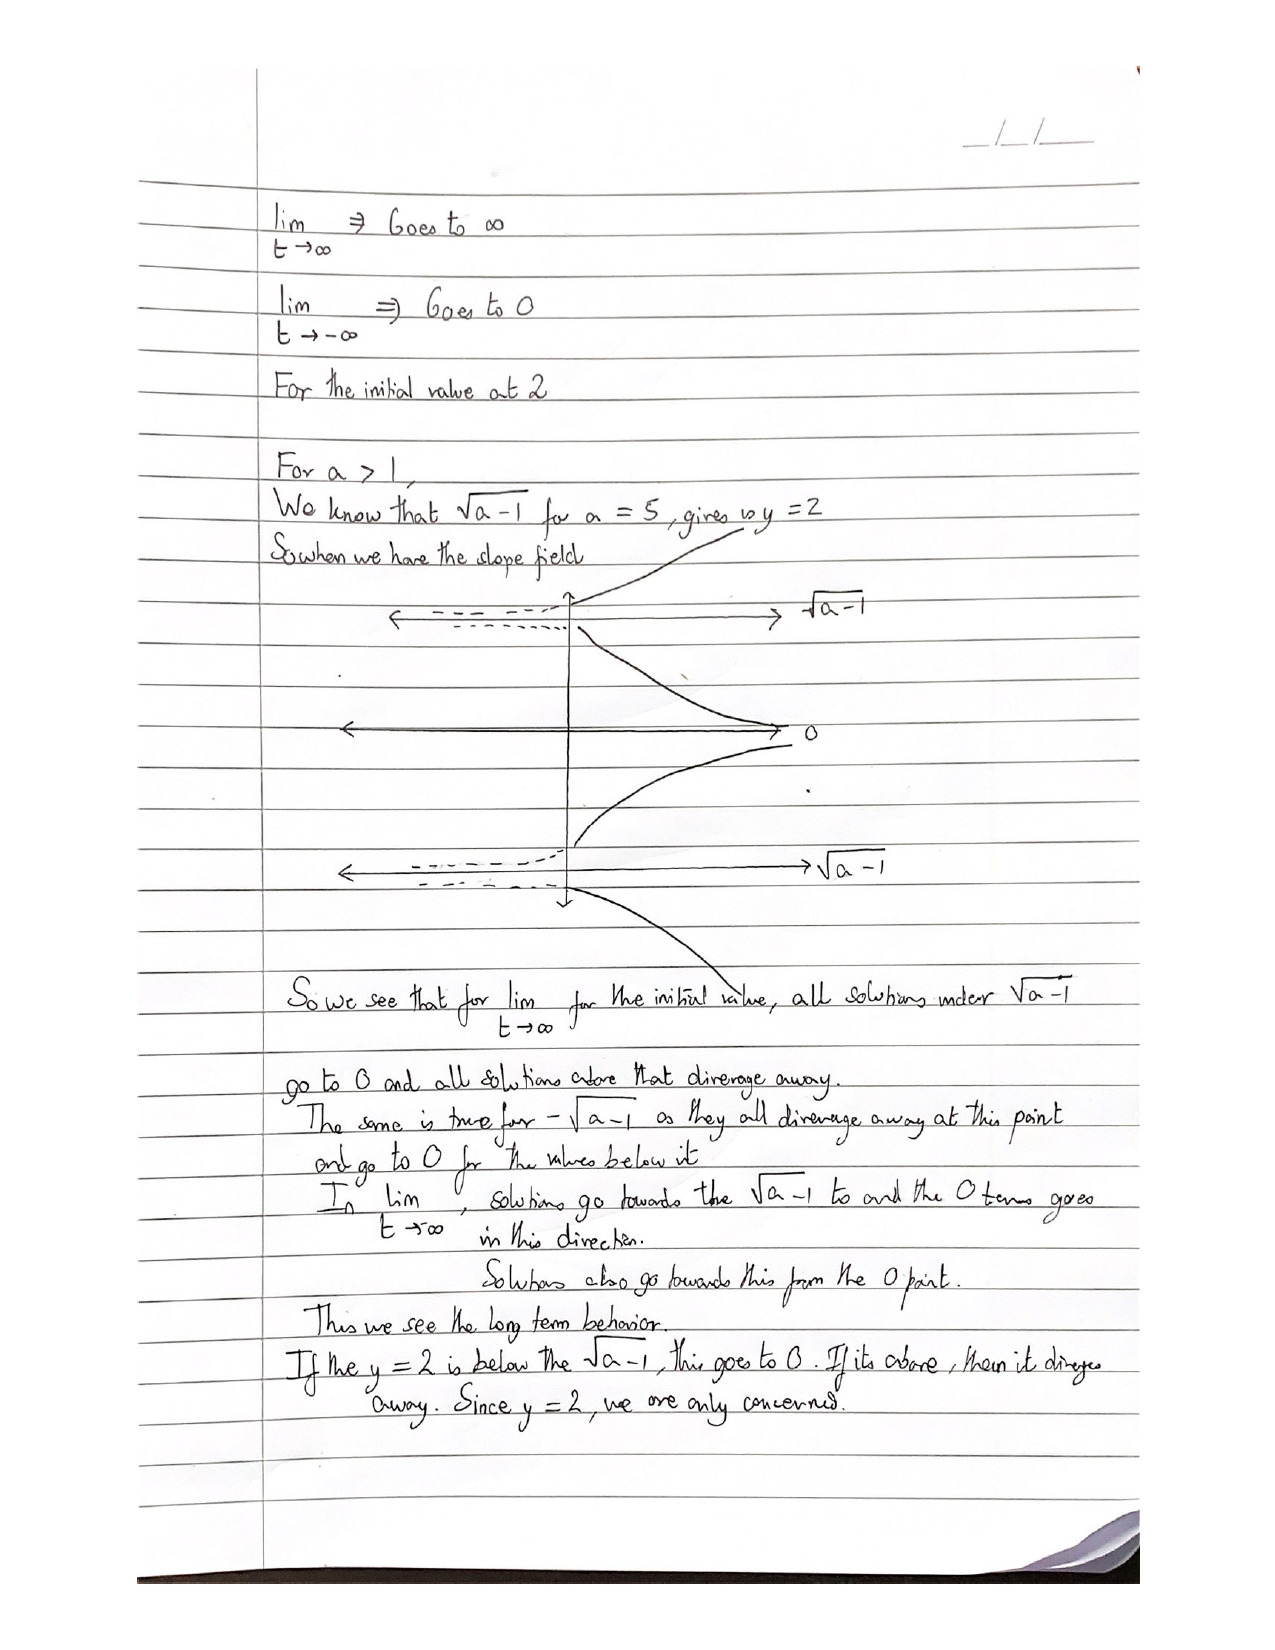 __/__/____
lim ⇒ Goes to ∞
t→∞
lim ⇒ Goes to 0
t→-∞
For the initial value at 2
For a > 1,
We know that √a-1 for a = 5, gives us y = 2
So when we have the slope field
√a-1
0
√a-1
So we see that for lim for the initial value, all solutions under √a-1
t→∞
go to 0 and all solutions above that diverage away.
The same is true for -√a-1 as they all diverage away at this point
and go to 0 for the values below it
In lim , solutions go towards the √a-1 to and the 0 terms goes
t→-∞ in this direction.
Solutions also go towards this from the 0 point.
This we see the long term behavior.
If the y = 2 is below the √a-1, this goes to 0. If its above, then it diverges
away. Since y = 2, we are only concerned.